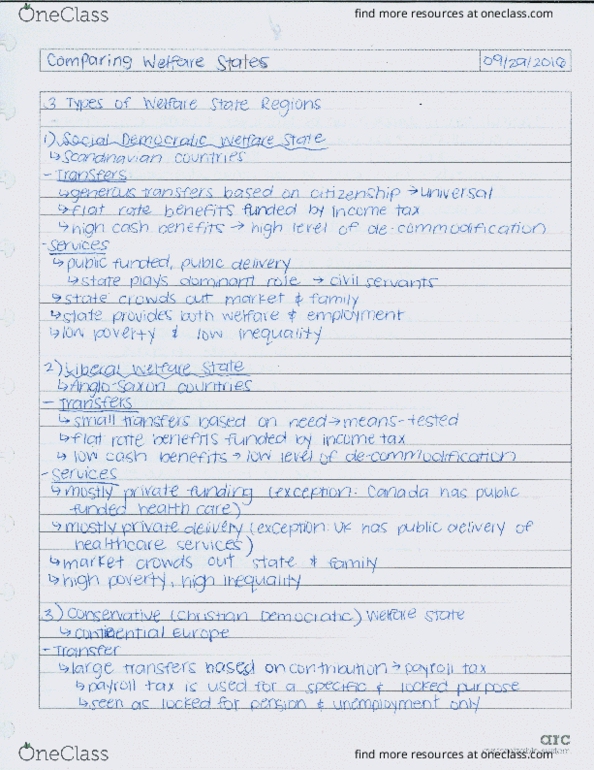 OneClass
find more resources at oneclass.com
Comparing Welfare States 09/29/2016
3 Types of Welfare State Regions
1) Social Democratic Welfare State
↳ Scandinavian countries
- Transfers
↳ generous transfers based on citizenship → universal
↳ flat rate benefits funded by income tax
↳ high cash benefits → high level of de-commodification
- Services
↳ public funded, public delivery
↳ state plays dominant role → civil servants
↳ state crowds out market & family
↳ state provides both welfare & employment
↳ low poverty & low inequality
2) Liberal Welfare State
↳ Anglo-Saxon countries
- Transfers
↳ small transfers based on need → means-tested
↳ flat rate benefits funded by income tax
↳ low cash benefits → low level of de-commodification
- Services
↳ mostly private funding (exception: Canada has public
funded health care)
↳ mostly private delivery (exception: UK has public delivery of
healthcare services)
↳ market crowds out state & family
↳ high poverty, high inequality
3) Conservative (Christian Democratic) Welfare State
↳ Europe
- Transfer
↳ large transfers based on contribution → payroll tax
↳ payroll tax is used for a specific & locked purpose
↳ seen as locked for pension & unemployment only
arc
OneClass
find more resources at oneclass.com